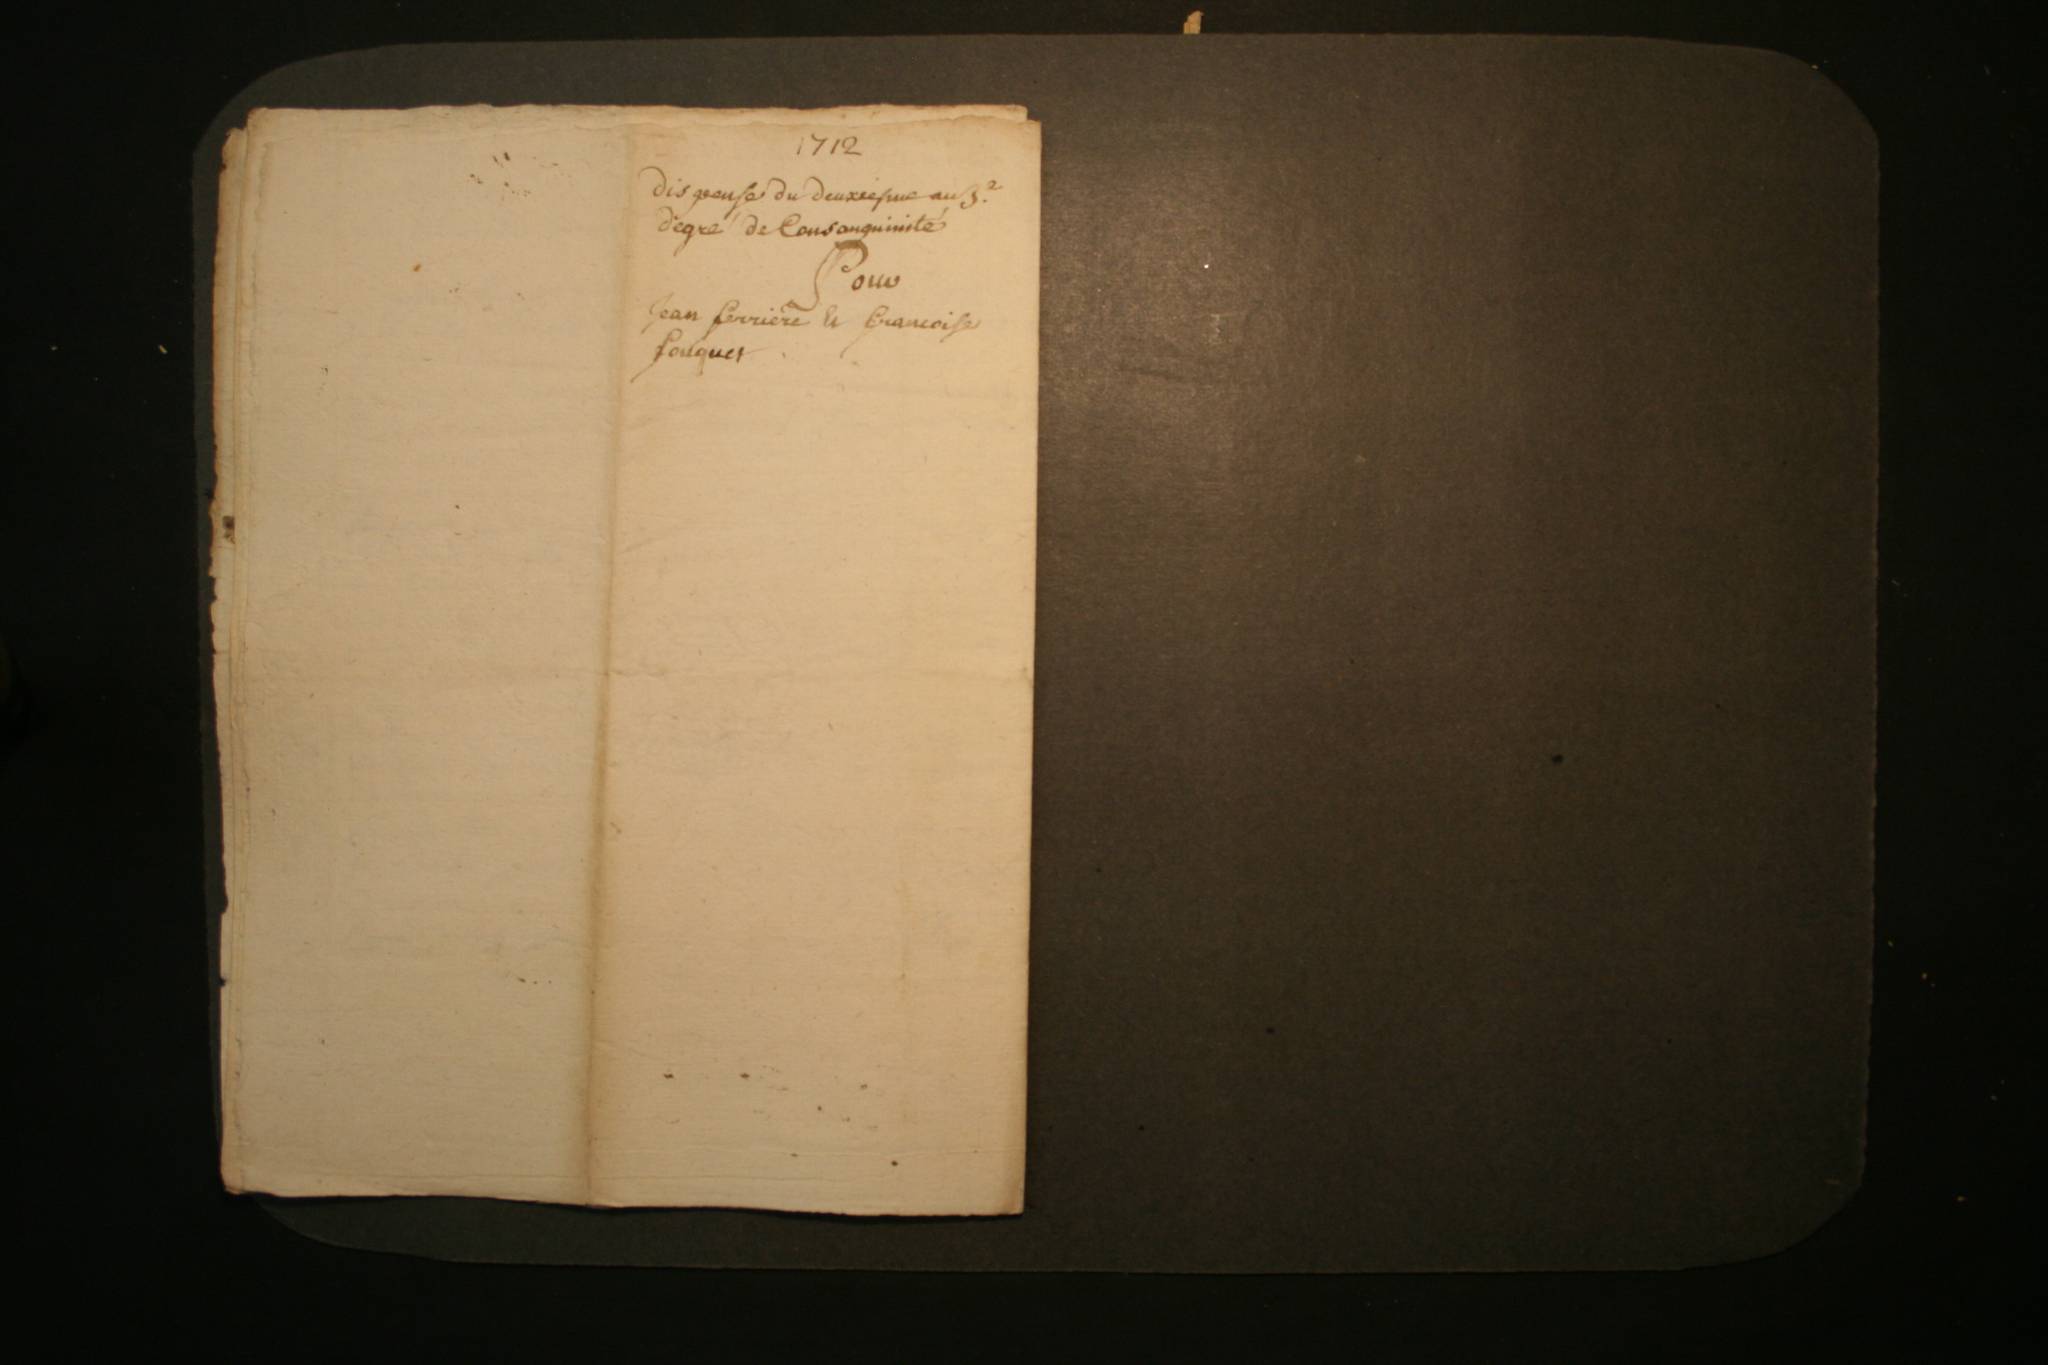 1712
Dispense du deuxiesme au 3.e
degré de Consanguinité
Pour
Jean ferriere et francoise
fouquet